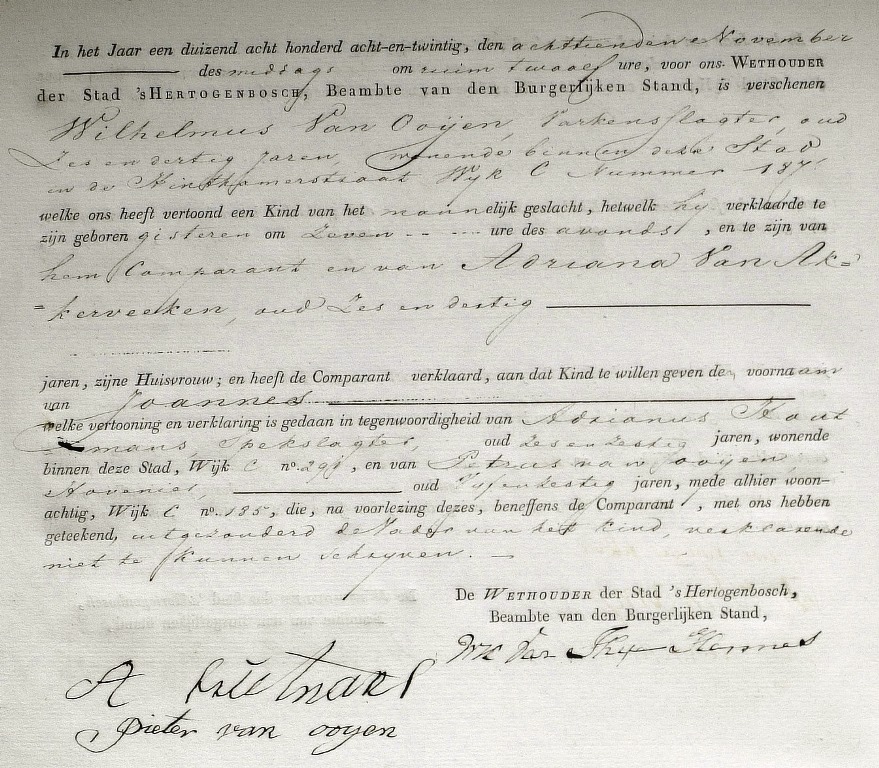 In het Jaar een duizend acht honderd acht-en-twintig, den achttienden November
des middags om ruim twaalf ure, voor ons WETHOUDER
der Stad 'sHERTOGENBOSCH, Beambte van den Burgerlijken Stand, is verschenen
Wilhelmus Van Ooijen, Varkensslagter, oud
Zes en dertig Jaren, wonende binnen deze Stad
in de Hinthamerstraat Wijk C Nummer 187
welke ons heeft vertoond een Kind van het mannelijk geslacht, hetwelk hij verklaarde te
zijn geboren gisteren om Zeven ure des avonds, en te zijn van
hem Comparant en van Adriana Van Ak=
=kerveeken, oud Zes en dertig
jaren, zijne Huisvrouw; en heeft de Comparant verklaard, aan dat Kind te willen geven de voornaam
van Joannes
welke vertooning en verklaring is gedaan in tegenwoordigheid van Adrianus Hout
mans, Spekslagter, oud zes en zestig jaren, wonende
binnen deze Stad, Wijk C n°. 291, en van Petrus van Ooijen,
Hovenier, oud Vijf en zestig jaren, mede alhier woon-
achtig, Wijk C n°. 185, die, na voorlezing dezes, beneffens de Comparant, met ons hebben
geteekend, uitgezonderd de Vader van het kind, verklarende
niet te kunnen schrijven.
De WETHOUDER der Stad 'sHertogenbosch,
Beambte van den Burgerlijken Stand,
A
Pieter van ooyen